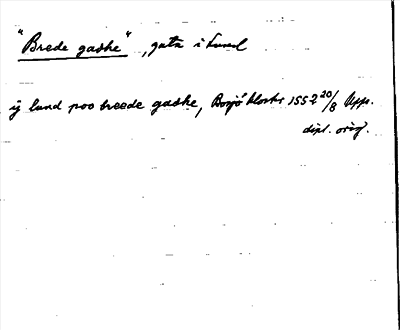 "Brede gaske", gata i Lund
ij lund poo breede gaske, Bosjökloster 1552 20/8 Upps.
dipl. orig.